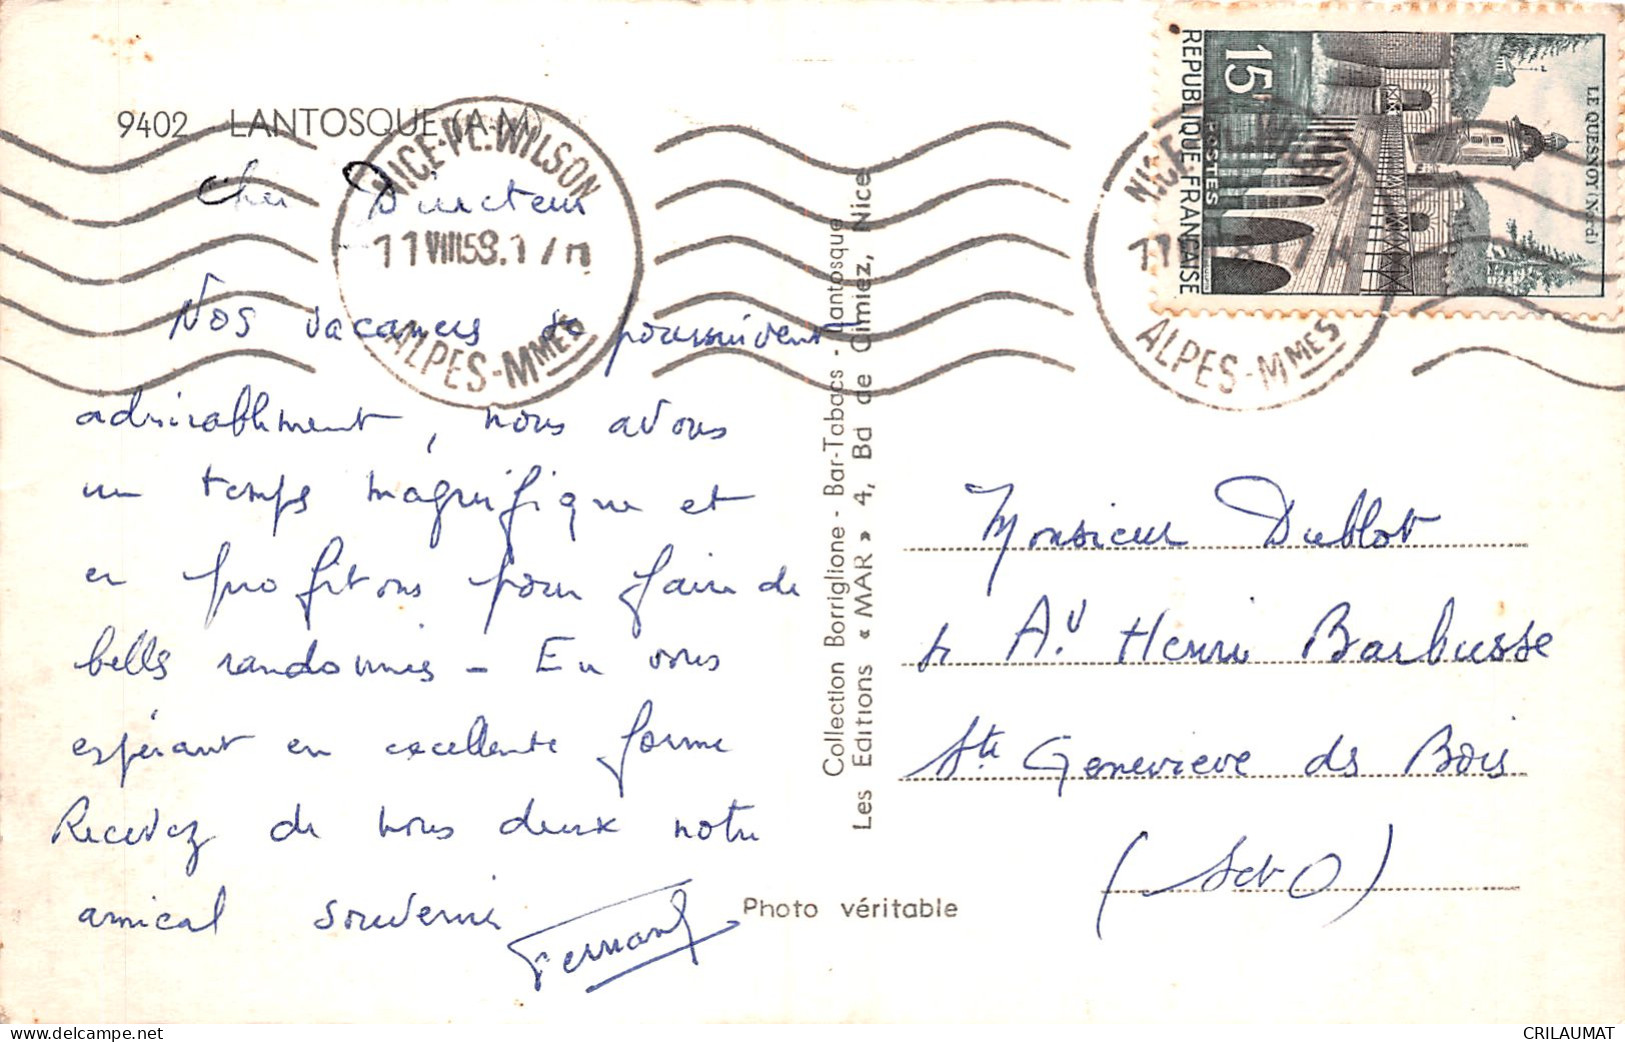 9402 LANTOSQUE (A-M)
Cher Directeur
Nos vacances se poursuivent
admirablement, nous avons
un temps magnifique et
en profitons pour faire de
belles randonnées - En vous
espérant en excellente forme
Recevez de nous deux notre
amical souvenir
Fernand
NICE-PL.WILSON
11 VIII 58. 17 H
ALPES-MMES
Collection Borriglione - Bar-Tabacs - Lantosque
Les Editions « MAR » 4, Bd de Cimiez, Nice
Photo véritable
15F
REPUBLIQUE FRANÇAISE
POSTES
LE QUESNOY (Nord)
NICE
ALPES-MMES
Monsieur Dublot
Av Henri Barbusse
Ste Genevieve des Bois
(S et O)
CRILAUMAT